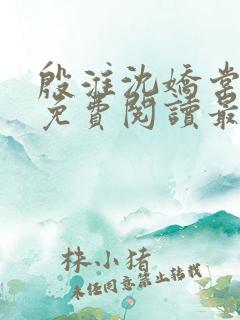 殷淮沈嬌當
免費閱讀最
株小猪
未任同意禁止转载